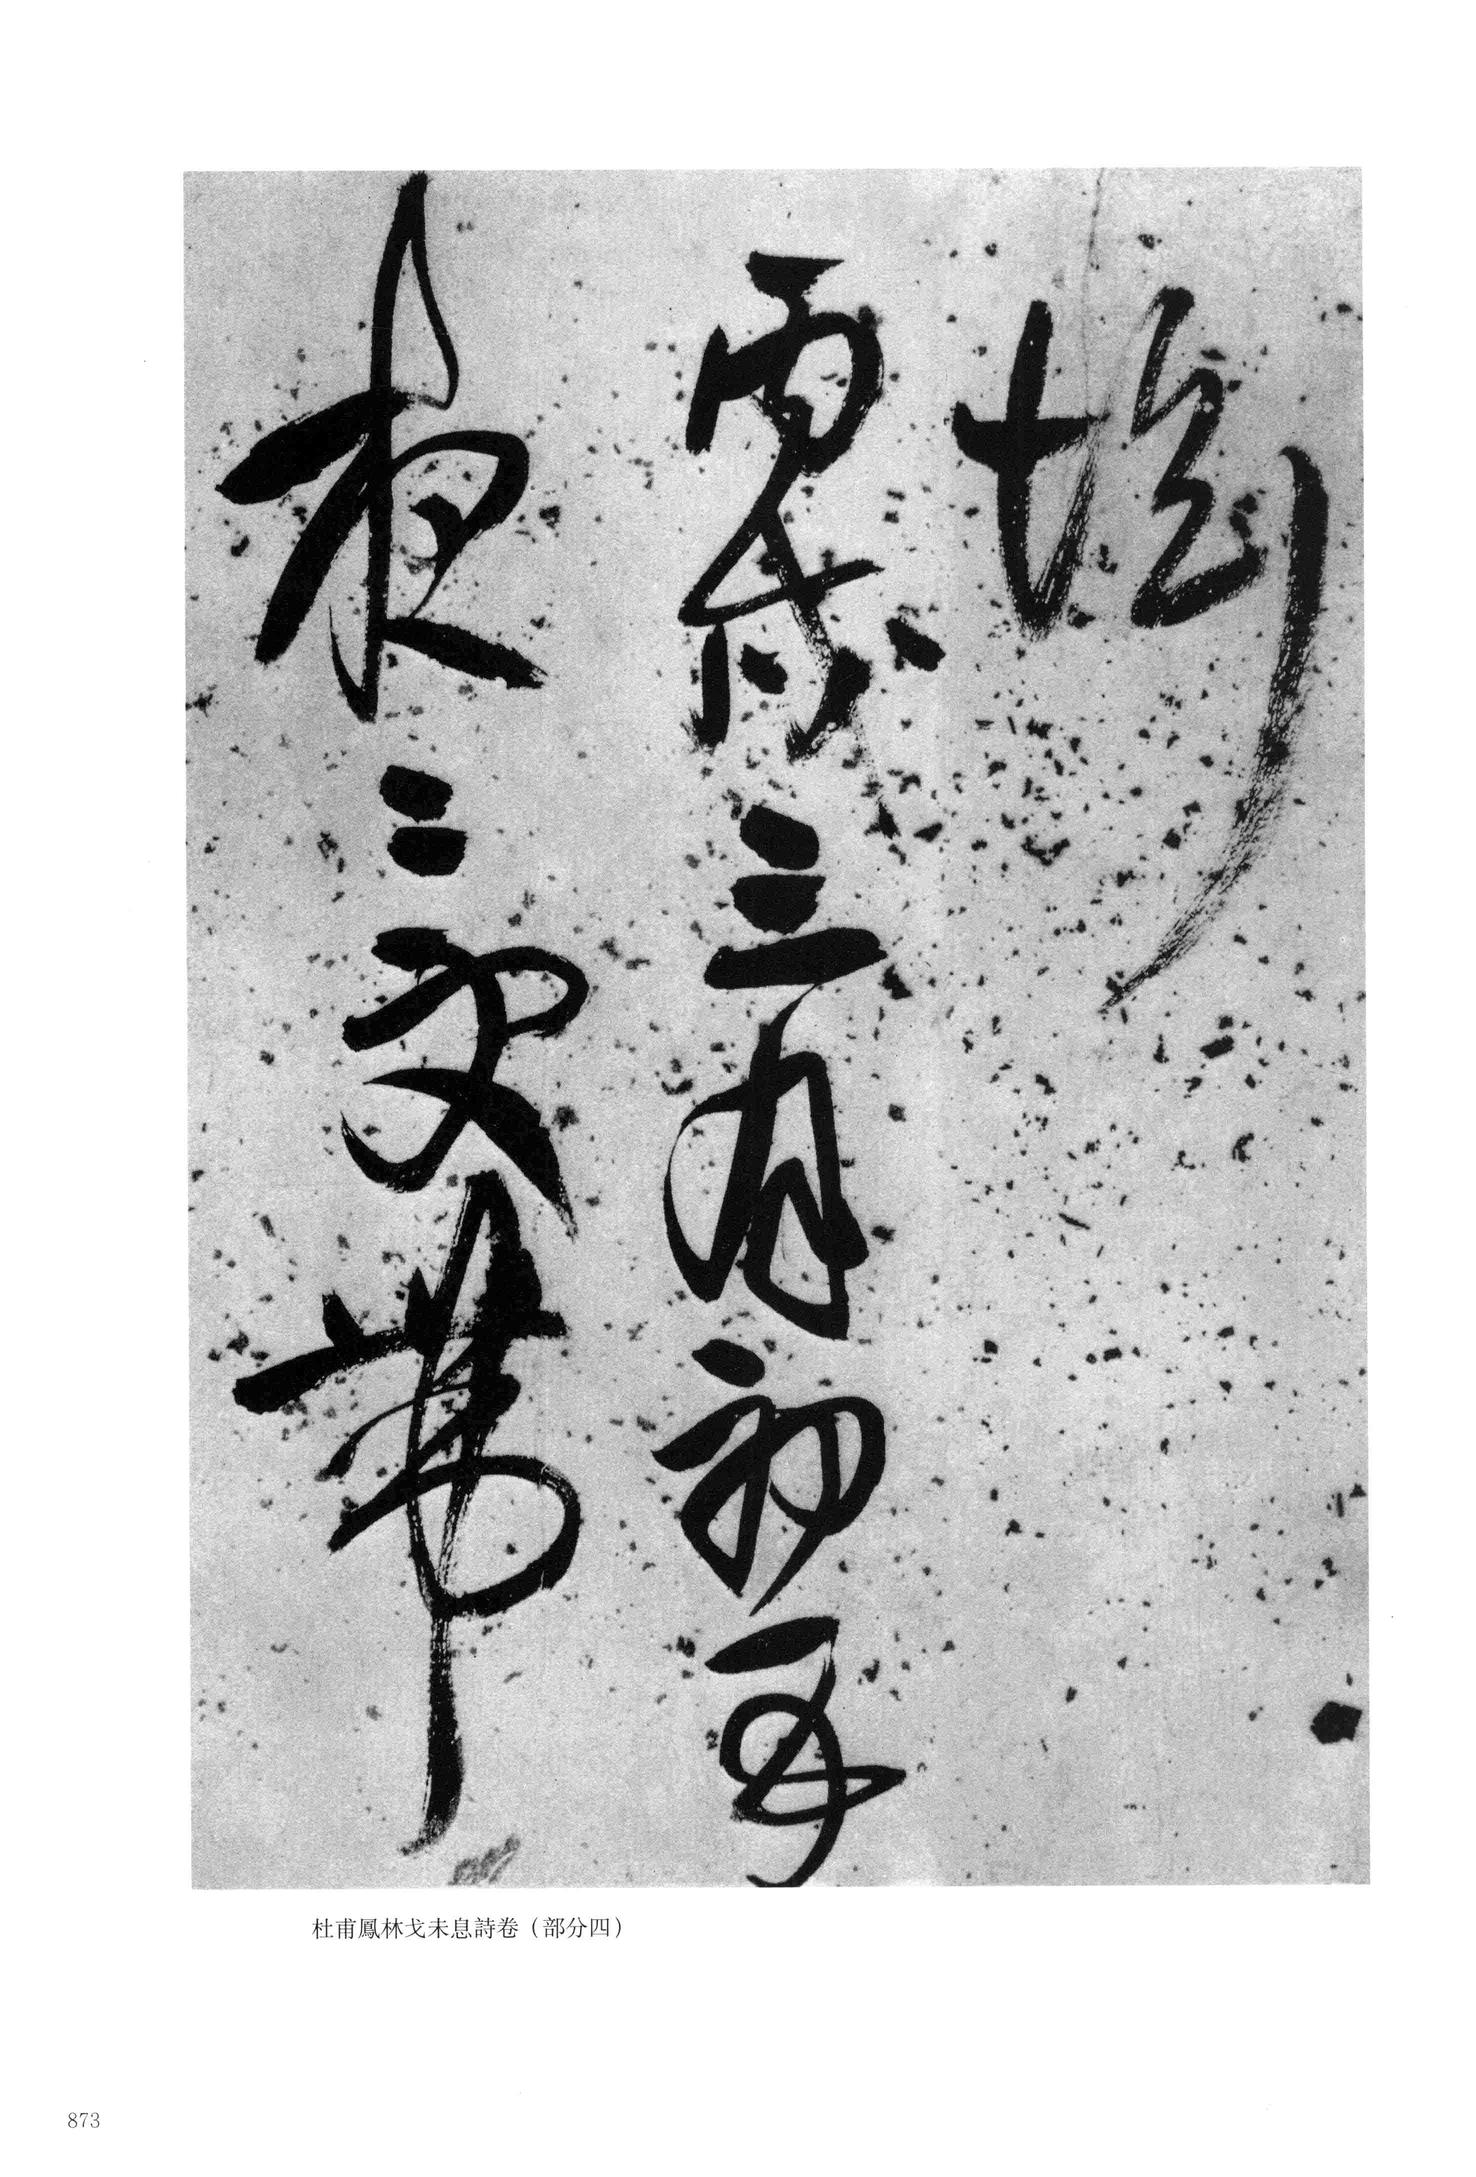 丙戌三月初五
夜二更帶
杜甫鳳林戈未息詩卷（部分四）
873